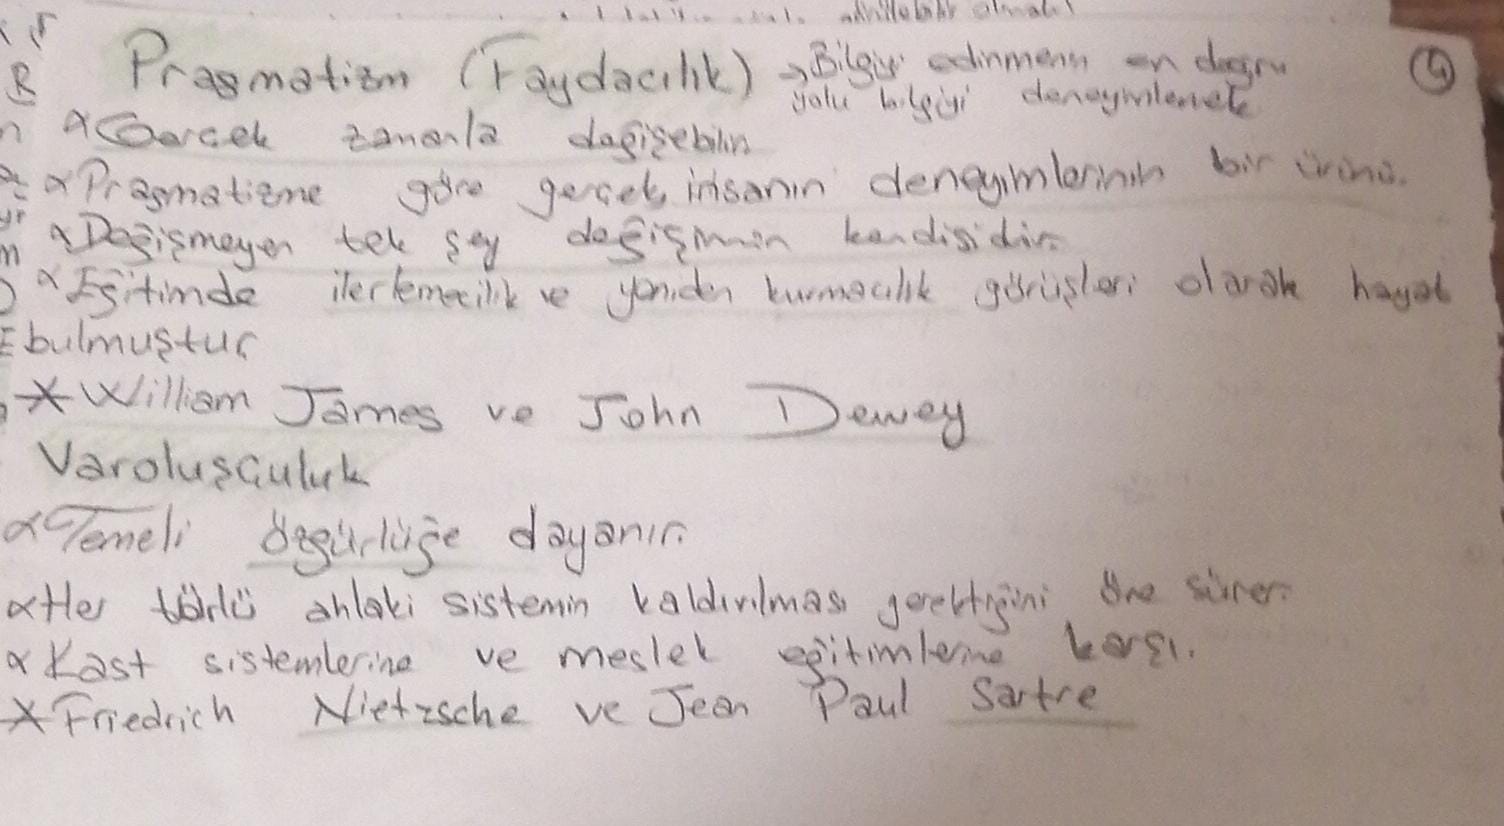 akıllılabilir olmalı
Pragmatizm (Faydacılık) → Bilgiyi edinmenin en doğru
yolu bilgiyi deneyimlemek
α Gerçek zamanla değişebilir.
α Pragmatizme göre gerçek, insanın deneyimlerinin bir ürünü.
α Değişmeyen tek şey değişimin kendisidir.
α Eğitimde ilerlemecilik ve yeniden kurmacılık görüşleri olarak hayat
bulmuştur.
* William James ve John Dewey
Varoluşçuluk
α Temeli özgürlüğe dayanır.
α Her türlü ahlaki sistemin kaldırılması gerektiğini öne sürer.
α Kast sistemlerine ve meslek eğitimlerine karşı.
* Friedrich Nietzsche ve Jean Paul Sartre